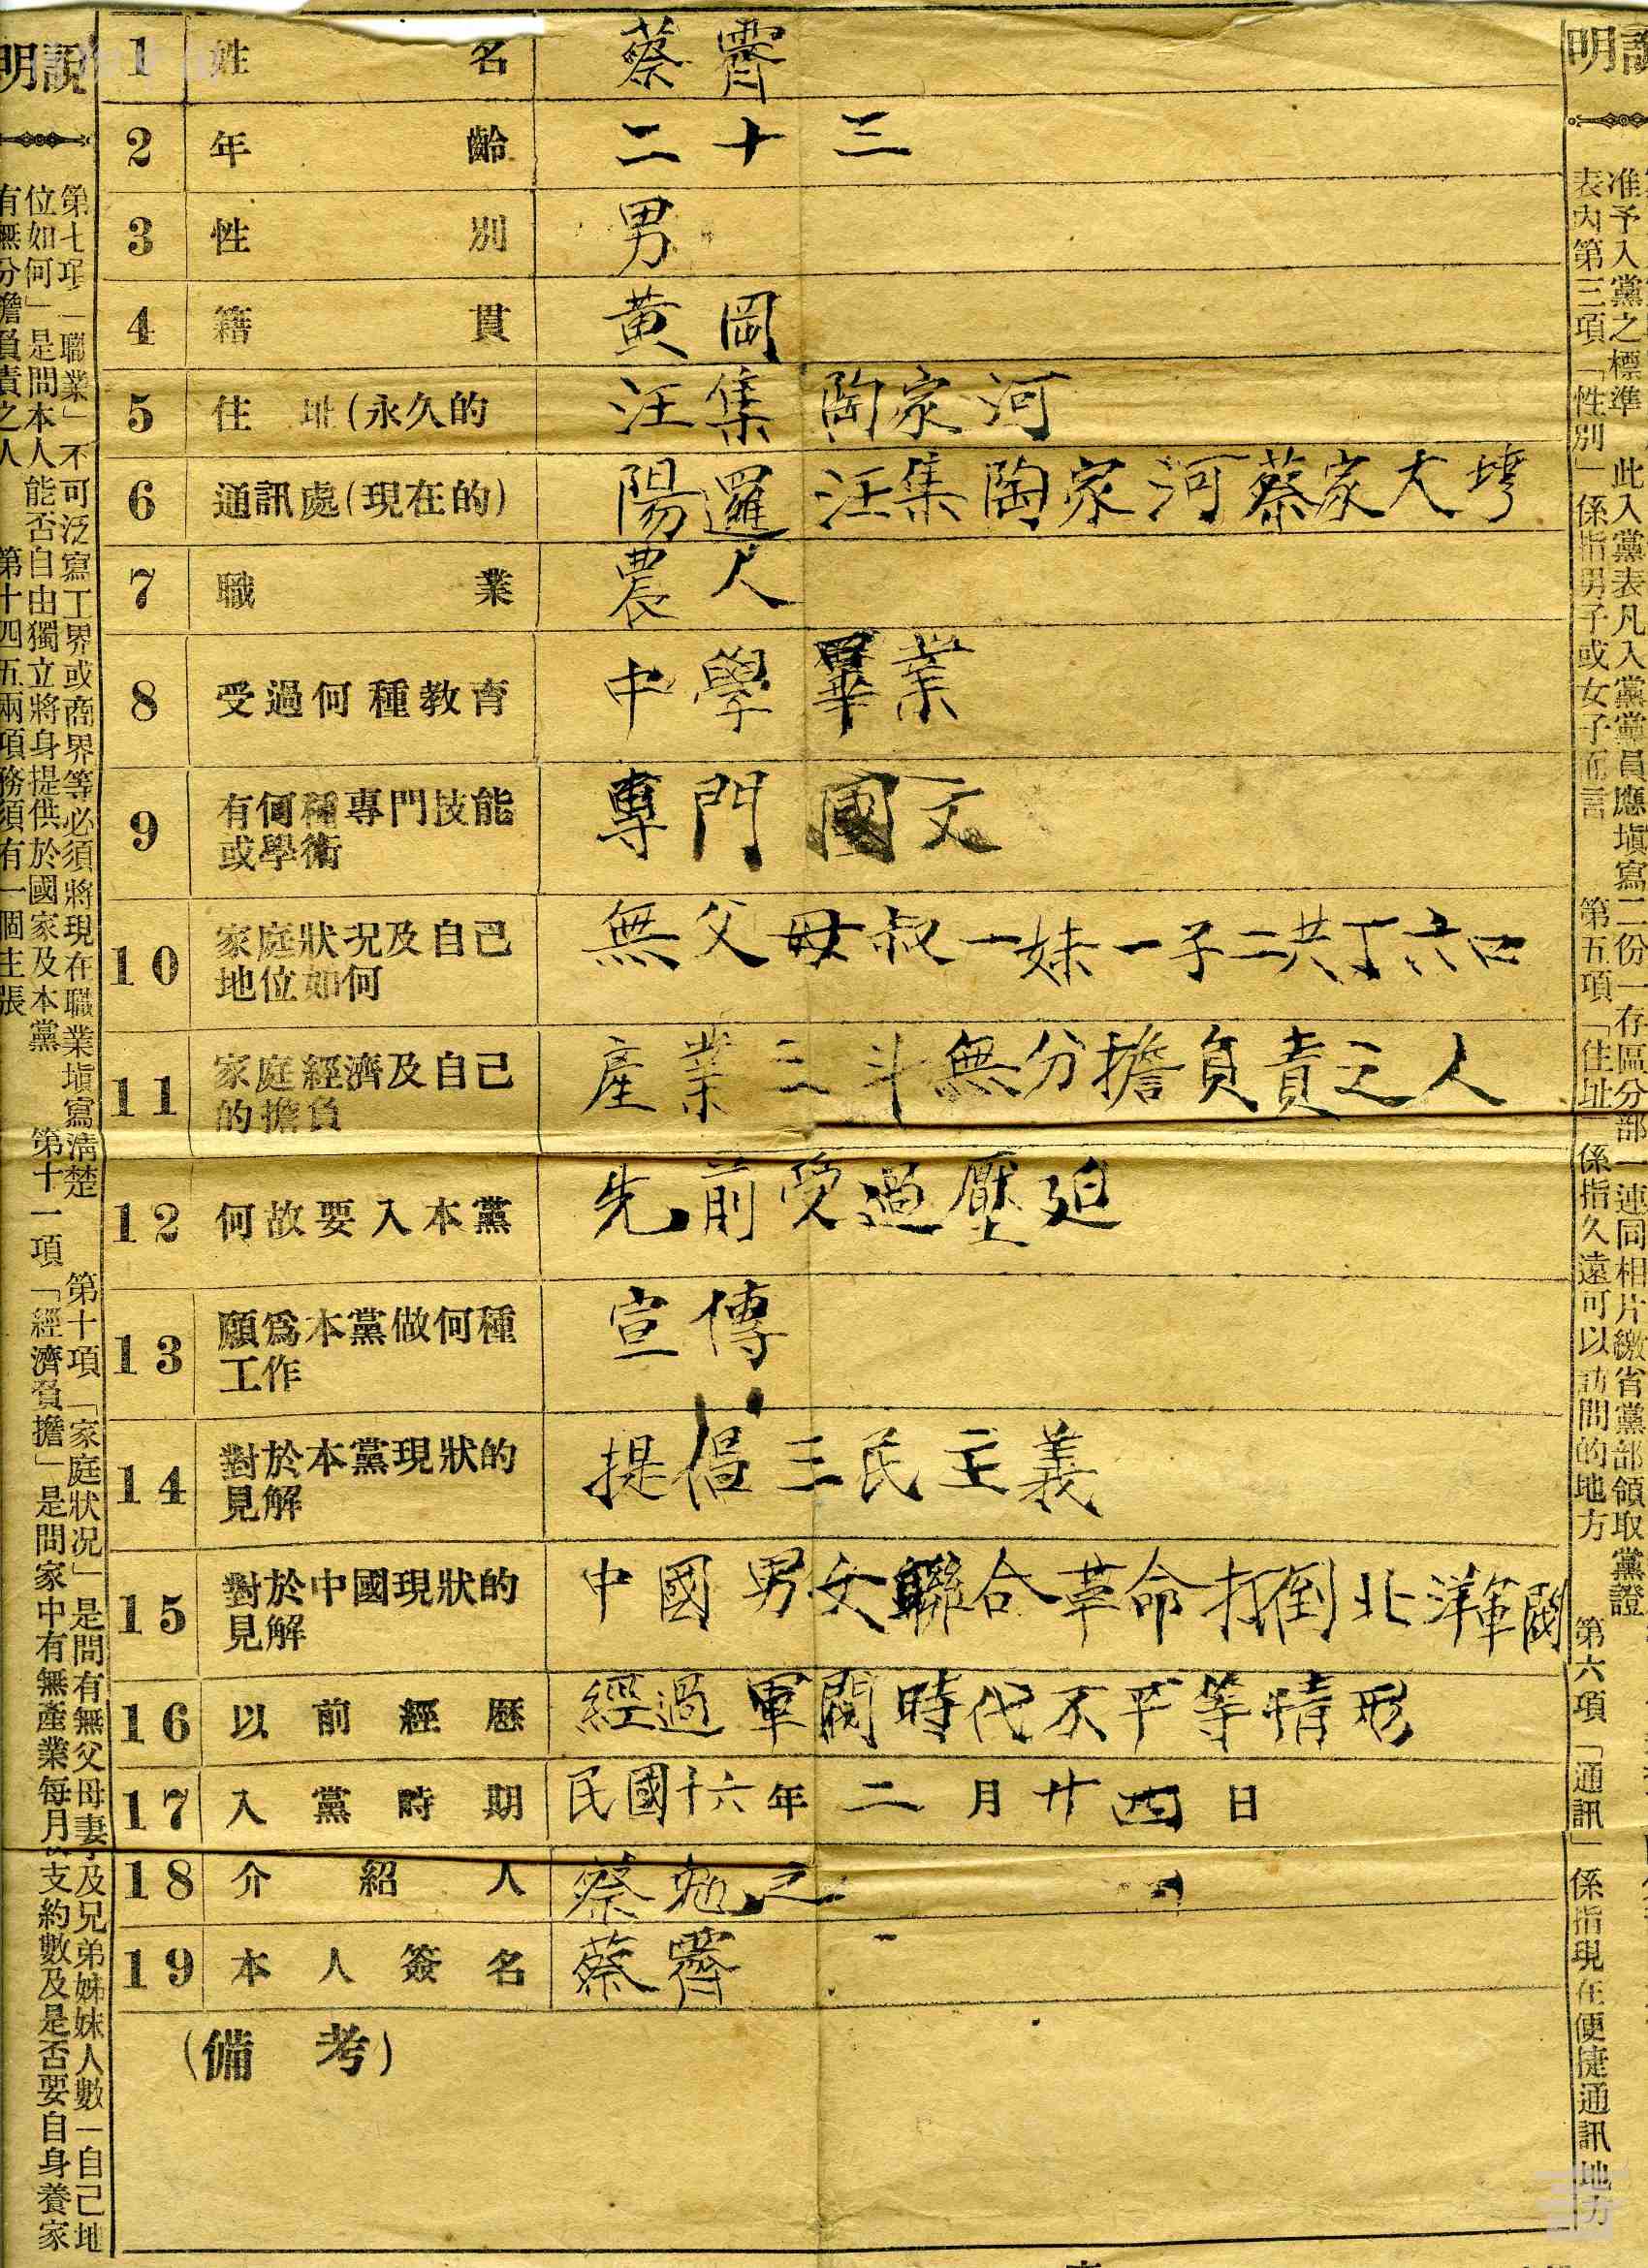 說明
准予入黨之標準 此入黨表凡入黨黨員應塡寫二份一存區分部一連同相片繳省黨部領取黨證
表內第三項「性別」係指男子或女子而言 第五項「住址」係指久遠可以訪問的地方 第六項「通訊」係指現在便捷通訊地方
1 姓名 蔡霽
2 年齡 二十三
3 性別 男
4 籍貫 黃岡
5 住址(永久的 汪集陶家河
6 通訊處(現在的) 陽邏汪集陶家河蔡家大塆
7 職業 農人
8 受過何種教育 中學畢業
9 有何種專門技能或學術 專門國文
10 家庭狀況及自己地位如何 無父母叔一妹一子二共丁六口
11 家庭經濟及自己的擔負 產業三斗無分擔負責之人
12 何故要入本黨 先前受過壓迫
13 願爲本黨做何種工作 宣傳
14 對於本黨現狀的見解 提倡三民主義
15 對於中國現狀的見解 中國男女聯合革命打倒北洋軍閥
16 以前經歷 經過軍閥時代不平等情形
17 入黨時期 民國十六年二月廿四日
18 介紹人 蔡勉之
19 本人簽名 蔡霽
(備考)
說明
第七項「職業」不可泛寫工界或商界等必須將現在職業塡寫淸楚 第十項「家庭狀況」是問有無父母妻子及兄弟姊妹人數一自己地
位如何」是問本人能否自由獨立將身提供於國家及本黨 第十一項「經濟負擔」是問家中有無產業每月 支約數及是否要自身養家
有無分擔負責之人 第十四五兩項務須有一個主張